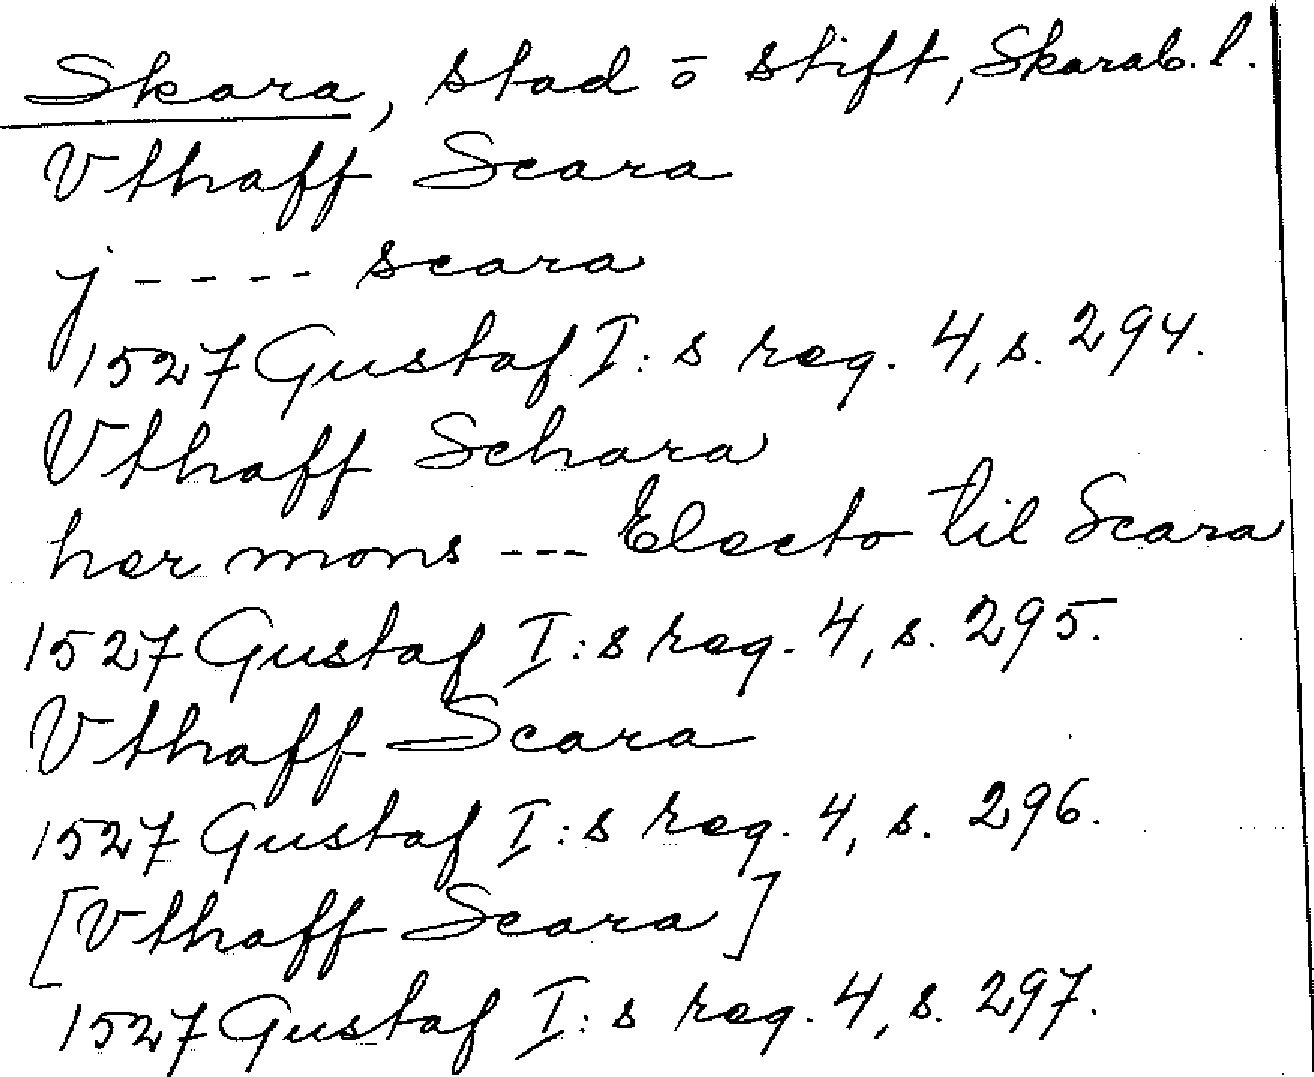 Skara, stad ō stift, Skarab. l.
Vthaff Scara
j - - - - scara
1527 Gustaf I:s reg. 4, s. 294.
Vthaff Schara
her mons --- Electo til Scara
1527 Gustaf I:s reg. 4, s. 295.
Vthaff Scara
1527 Gustaf I:s reg. 4, s. 296.
[Vthaff Scara]
1527 Gustaf I:s reg. 4, s. 297.